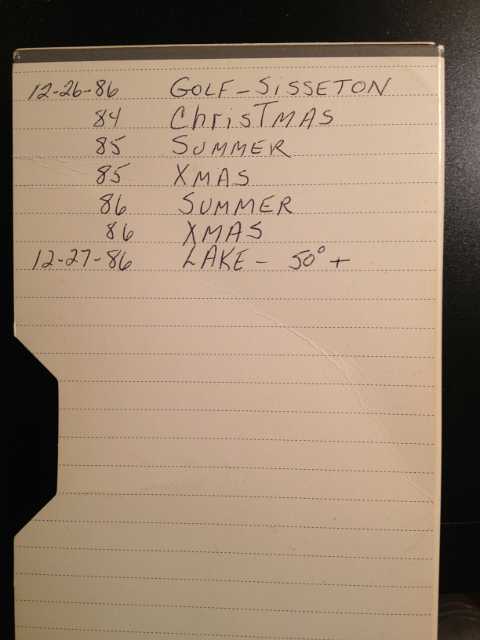 12-26-86 GOLF-SISSETON
84 ChrisTMAS
85 SUMMER
85 XMAS
86 SUMMER
86 XMAS
12-27-86 LAKE - 50° +